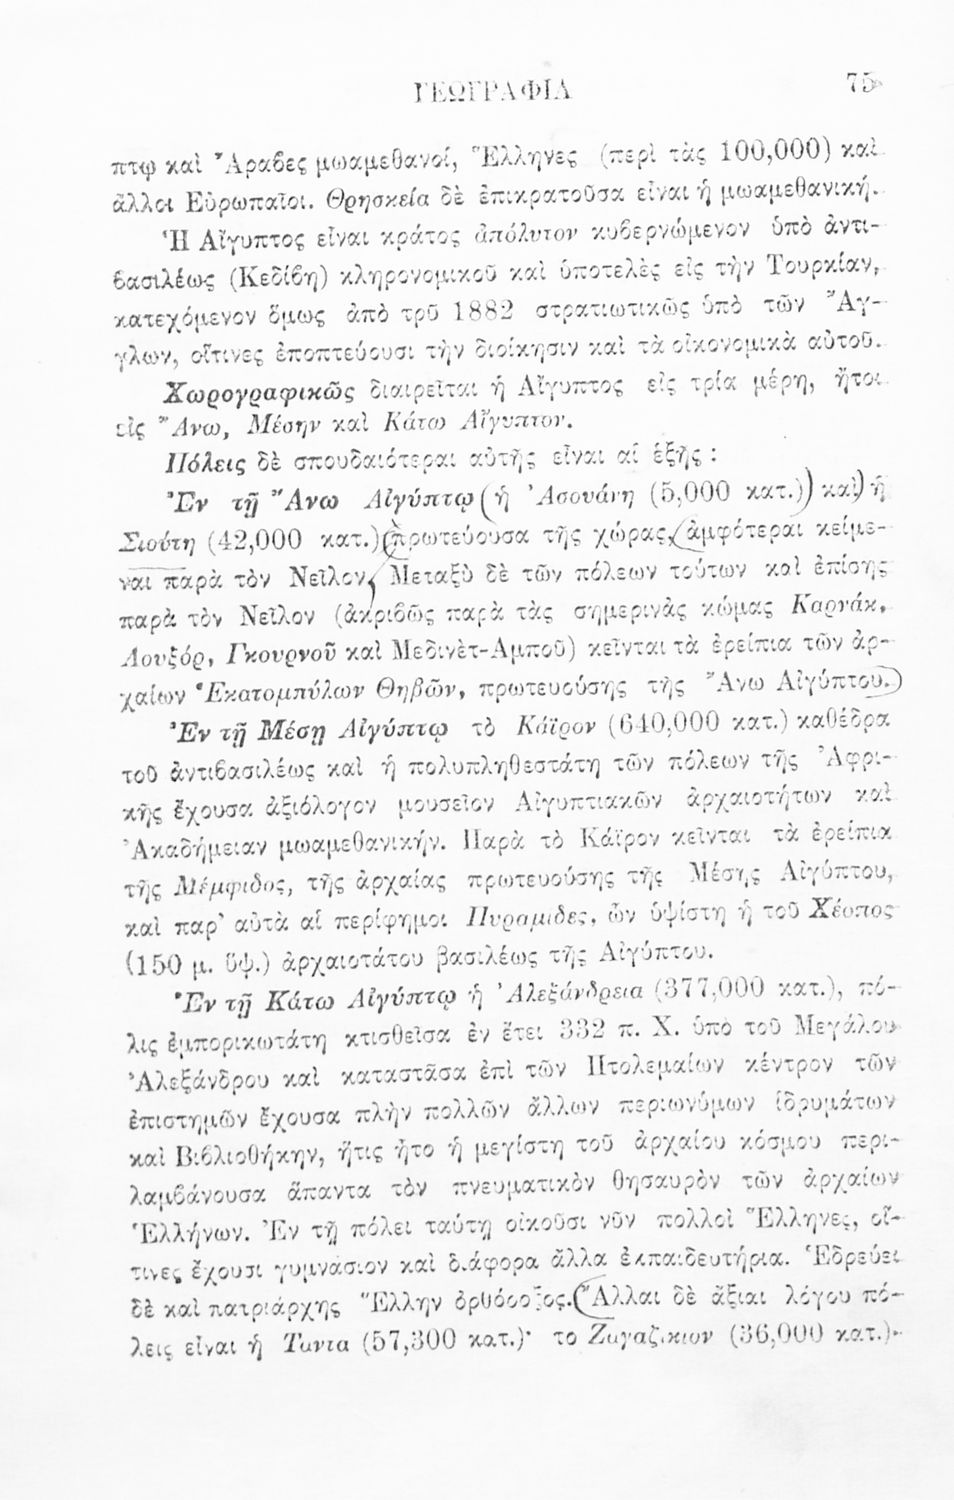 ΓΕΩΓΡΑΦΙΑ 75
πτῳ καὶ Ἄραβες μωαμεθανοί, Ἕλληνες (περὶ τὰς 100,000) καὶ
ἄλλοι Εὐρωπαῖοι. Θρησκεία δὲ ἐπικρατοῦσα εἶναι ἡ μωαμεθανική.
Ἡ Αἴγυπτος εἶναι κράτος ἀπόλυτον κυβερνώμενον ὑπὸ ἀντι-
βασιλέως (Κεδίβη) κληρονομικοῦ καὶ ὑποτελὲς εἰς τὴν Τουρκίαν,
κατεχόμενον ὅμως ἀπὸ τοῦ 1882 στρατιωτικῶς ὑπὸ τῶν Ἄγ-
γλων, οἵτινες ἐποπτεύουσι τὴν διοίκησιν καὶ τὰ οἰκονομικὰ αὐτοῦ.
Χωρογραφικῶς διαιρεῖται ἡ Αἴγυπτος εἰς τρία μέρη, ἤτοι
εἰς Ἄνω, Μέσην καὶ Κάτω Αἴγυπτον.
Πόλεις δὲ σπουδαιότεραι αὐτῆς εἶναι αἱ ἑξῆς :
Ἐν τῇ Ἄνω Αἰγύπτῳ (ἡ Ἀσουάνη (5,000 κατ.)) καὶ) ἡ
Σιούτη (42,000 κατ.) (πρωτεύουσα τῆς χώρας, (ἀμφότεραι κείμε-
ναι παρὰ τὸν Νεῖλον, Μεταξὺ δὲ τῶν πόλεων τούτων καὶ ἐπίσης
παρὰ τὸν Νεῖλον (ἀκριβῶς παρὰ τὰς σημερινὰς κώμας Καρνάκ,
Λουξόρ, Γκουρνοῦ καὶ Μεδινὲτ-Αμποῦ) κεῖνται τὰ ἐρείπια τῶν ἀρ-
χαίων Ἑκατομπύλων Θηβῶν, πρωτευούσης τῆς Ἄνω Αἰγύπτου.)
Ἐν τῇ Μέσῃ Αἰγύπτῳ τὸ Κάϊρον (640,000 κατ.) καθέδρα
τοῦ ἀντιβασιλέως καὶ ἡ πολυπληθεστάτη τῶν πόλεων τῆς Ἀφρι-
κῆς ἔχουσα ἀξιόλογον μουσεῖον Αἰγυπτιακῶν ἀρχαιοτήτων καὶ
Ἀκαδήμειαν μωαμεθανικήν. Παρὰ τὸ Κάϊρον κεῖνται τὰ ἐρείπια
τῆς Μέμφιδος, τῆς ἀρχαίας πρωτευούσης τῆς Μέσης Αἰγύπτου,
καὶ παρ' αὐτὰ αἱ περίφημοι Πυραμίδες, ὧν ὑψίστη ἡ τοῦ Χέοπος
(150 μ. ὕψ.) ἀρχαιοτάτου βασιλέως τῆς Αἰγύπτου.
Ἐν τῇ Κάτω Αἰγύπτῳ ἡ Ἀλεξάνδρεια (377,000 κατ.), πό-
λις ἐμπορικωτάτη κτισθεῖσα ἐν ἔτει 332 π. Χ. ὑπὸ τοῦ Μεγάλου
Ἀλεξάνδρου καὶ καταστᾶσα ἐπὶ τῶν Πτολεμαίων κέντρον τῶν
ἐπιστημῶν ἔχουσα πλὴν πολλῶν ἄλλων περιωνύμων ἱδρυμάτων
καὶ Βιβλιοθήκην, ἥτις ἦτο ἡ μεγίστη τοῦ ἀρχαίου κόσμου περι-
λαμβάνουσα ἅπαντα τὸν πνευματικὸν θησαυρὸν τῶν ἀρχαίων
Ἑλλήνων. Ἐν τῇ πόλει ταύτῃ οἰκοῦσι νῦν πολλοὶ Ἕλληνες, οἵ-
τινες ἔχουσι γυμνάσιον καὶ διάφορα ἄλλα ἐκπαιδευτήρια. Ἑδρεύει
δὲ καὶ πατριάρχης Ἕλλην ὀρθόδοξος. (Ἄλλαι δὲ ἄξιαι λόγου πό-
λεις εἶναι ἡ Τάντα (57,300 κατ.)· το Ζαγαζίκιον (36,000 κατ.)·